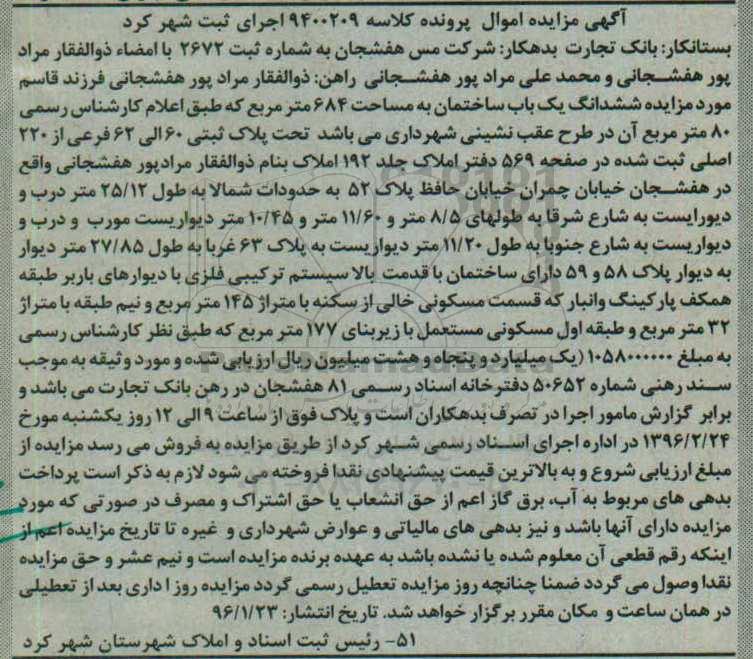 آگهی مزایده اموال پرونده کلاسه ۹۴۰۰۲۰۹ اجرای ثبت شهر کرد
بستانکار: بانک تجارت بدهکار: شرکت مس هفشجان به شماره ثبت ۲۶۷۲ با امضاء ذوالفقار مراد
پور هفشجانی و محمد علی مراد پور هفشجانی راهن: ذوالفقار مراد پور هفشجانی فرزند قاسم
مورد مزایده ششدانگ یک باب ساختمان به مساحت ۶۸۴ متر مربع که طبق اعلام کارشناس رسمی
۸۰ متر مربع آن در طرح عقب نشینی شهرداری می باشد تحت پلاک ثبتی ۶۰ الی ۶۲ فرعی از ۲۲۰
اصلی ثبت شده در صفحه ۵۶۹ دفتر املاک جلد ۱۹۲ املاک بنام ذوالفقار مرادپور هفشجانی واقع
در هفشجان خیابان چمران خیابان حافظ پلاک ۵۲ به حدودات شمالا به طول ۲۵/۱۲ متر درب و
دیورایست به شارع شرقا به طولهای ۸/۵ متر و ۱۱/۶۰ متر و ۱۰/۴۵ متر دیواریست مورب و درب و
دیواریست به شارع جنوبا به طول ۱۱/۲۰ متر دیواریست به پلاک ۶۳ غربا به طول ۲۷/۸۵ متر دیوار
به دیوار پلاک ۵۸ و ۵۹ دارای ساختمان با قدمت بالا سیستم ترکیبی فلزی با دیوارهای باربر طبقه
همکف پارکینگ وانبار که قسمت مسکونی خالی از سکنه با متراژ ۱۴۵ متر مربع و نیم طبقه با متراژ
۳۲ متر مربع و طبقه اول مسکونی مستعمل با زیربنای ۱۷۷ متر مربع که طبق نظر کارشناس رسمی
به مبلغ ۱۰۵۸۰۰۰۰۰۰ (یک میلیارد و پنجاه و هشت میلیون ریال ارزیابی شده و مورد وثیقه به موجب
سند رهنی شماره ۵۰۶۵۲ دفترخانه اسناد رسمی ۸۱ هفشجان در رهن بانک تجارت می باشد و
برابر گزارش مامور اجرا در تصرف بدهکاران است و پلاک فوق از ساعت ۹ الی ۱۲ روز یکشنبه مورخ
۱۳۹۶/۲/۲۴ در اداره اجرای اسناد رسمی شهر کرد از طریق مزایده به فروش می رسد مزایده از
مبلغ ارزیابی شروع و به بالاترین قیمت پیشنهادی نقدا فروخته می شود لازم به ذکر است پرداخت
بدهی های مربوط به آب، برق گاز اعم از حق انشعاب یا حق اشتراک و مصرف در صورتی که مورد
مزایده دارای آنها باشد و نیز بدهی های مالیاتی و عوارض شهرداری و غیره تا تاریخ مزایده اعم از
اینکه رقم قطعی آن معلوم شده یا نشده باشد به عهده برنده مزایده است و نیم عشر و حق مزایده
نقدا وصول می گردد ضمنا چنانچه روز مزایده تعطیل رسمی گردد مزایده روز ا داری بعد از تعطیلی
در همان ساعت و مکان مقرر برگزار خواهد شد. تاریخ انتشار: ۹۶/۱/۲۳
۵۱- رئیس ثبت اسناد و املاک شهرستان شهر کرد